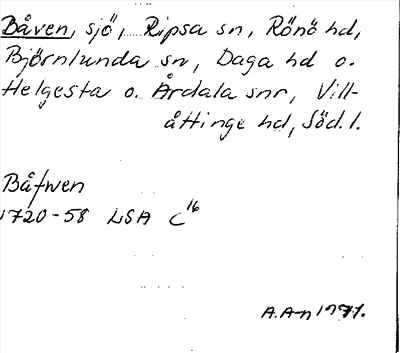 Båven, sjö, Ripsa sn, Rönö hd,
Björnlunda sn, Daga hd o.
Helgesta o. Årdala snr, Vill-
åttinge hd, Söd. l.
Båfwen
1720-58 LSA C16
A.A-n 1971.